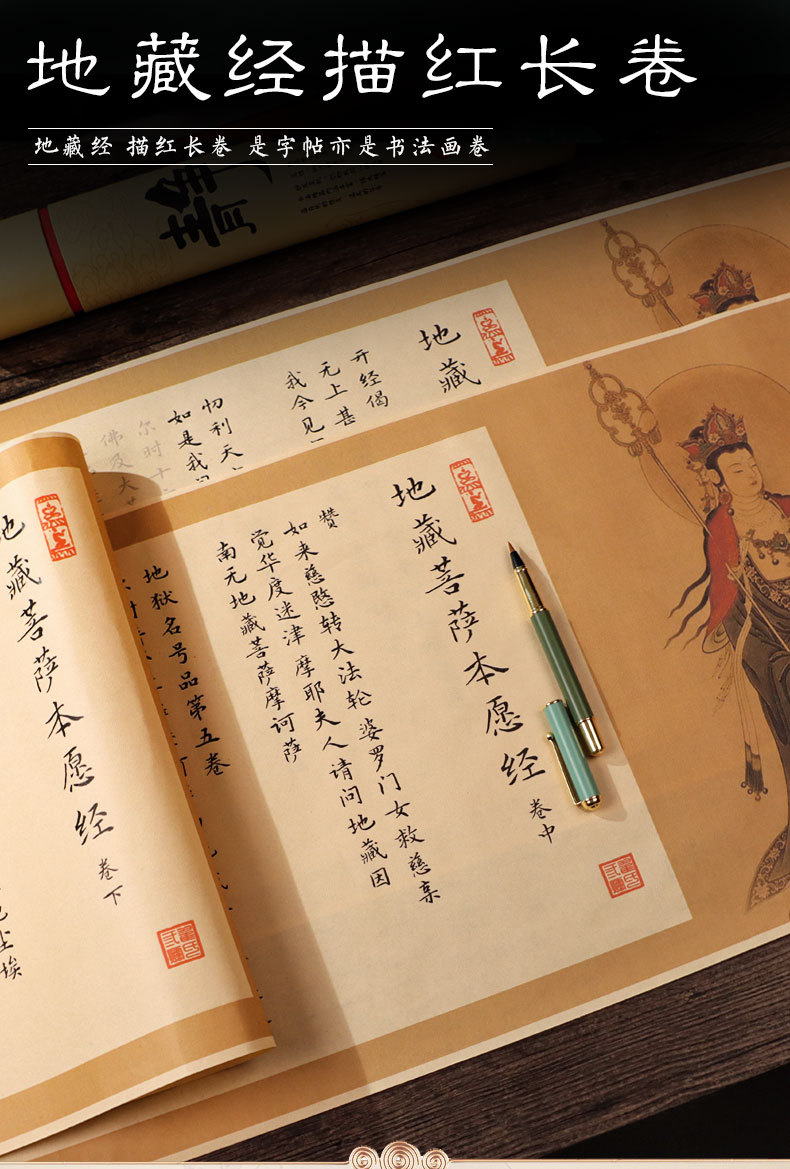 地藏经描红长卷
地藏经 描红长卷 是字帖亦是书法画卷
地藏
开经偈
无上甚
我今见
忉利天
如是我
尔时十
佛及大
地藏菩萨本愿经 卷中
赞
如来慈愍转大法轮 婆罗门女救慈亲
觉华度迷津 摩耶夫人请问地藏因
南无地藏菩萨摩诃萨
地狱名号品第五卷
地藏菩萨本愿经 卷下
尘埃